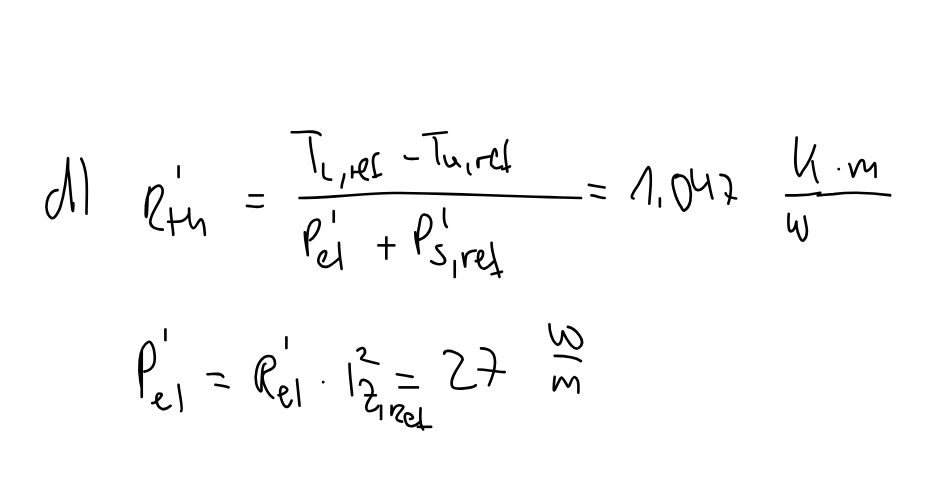 d) R'th = (TL,ref - Tu,ref) / (P'el + P's,ref) = 1.047 K·m/W
P'el = R'el · I²z,ref = 27 W/m